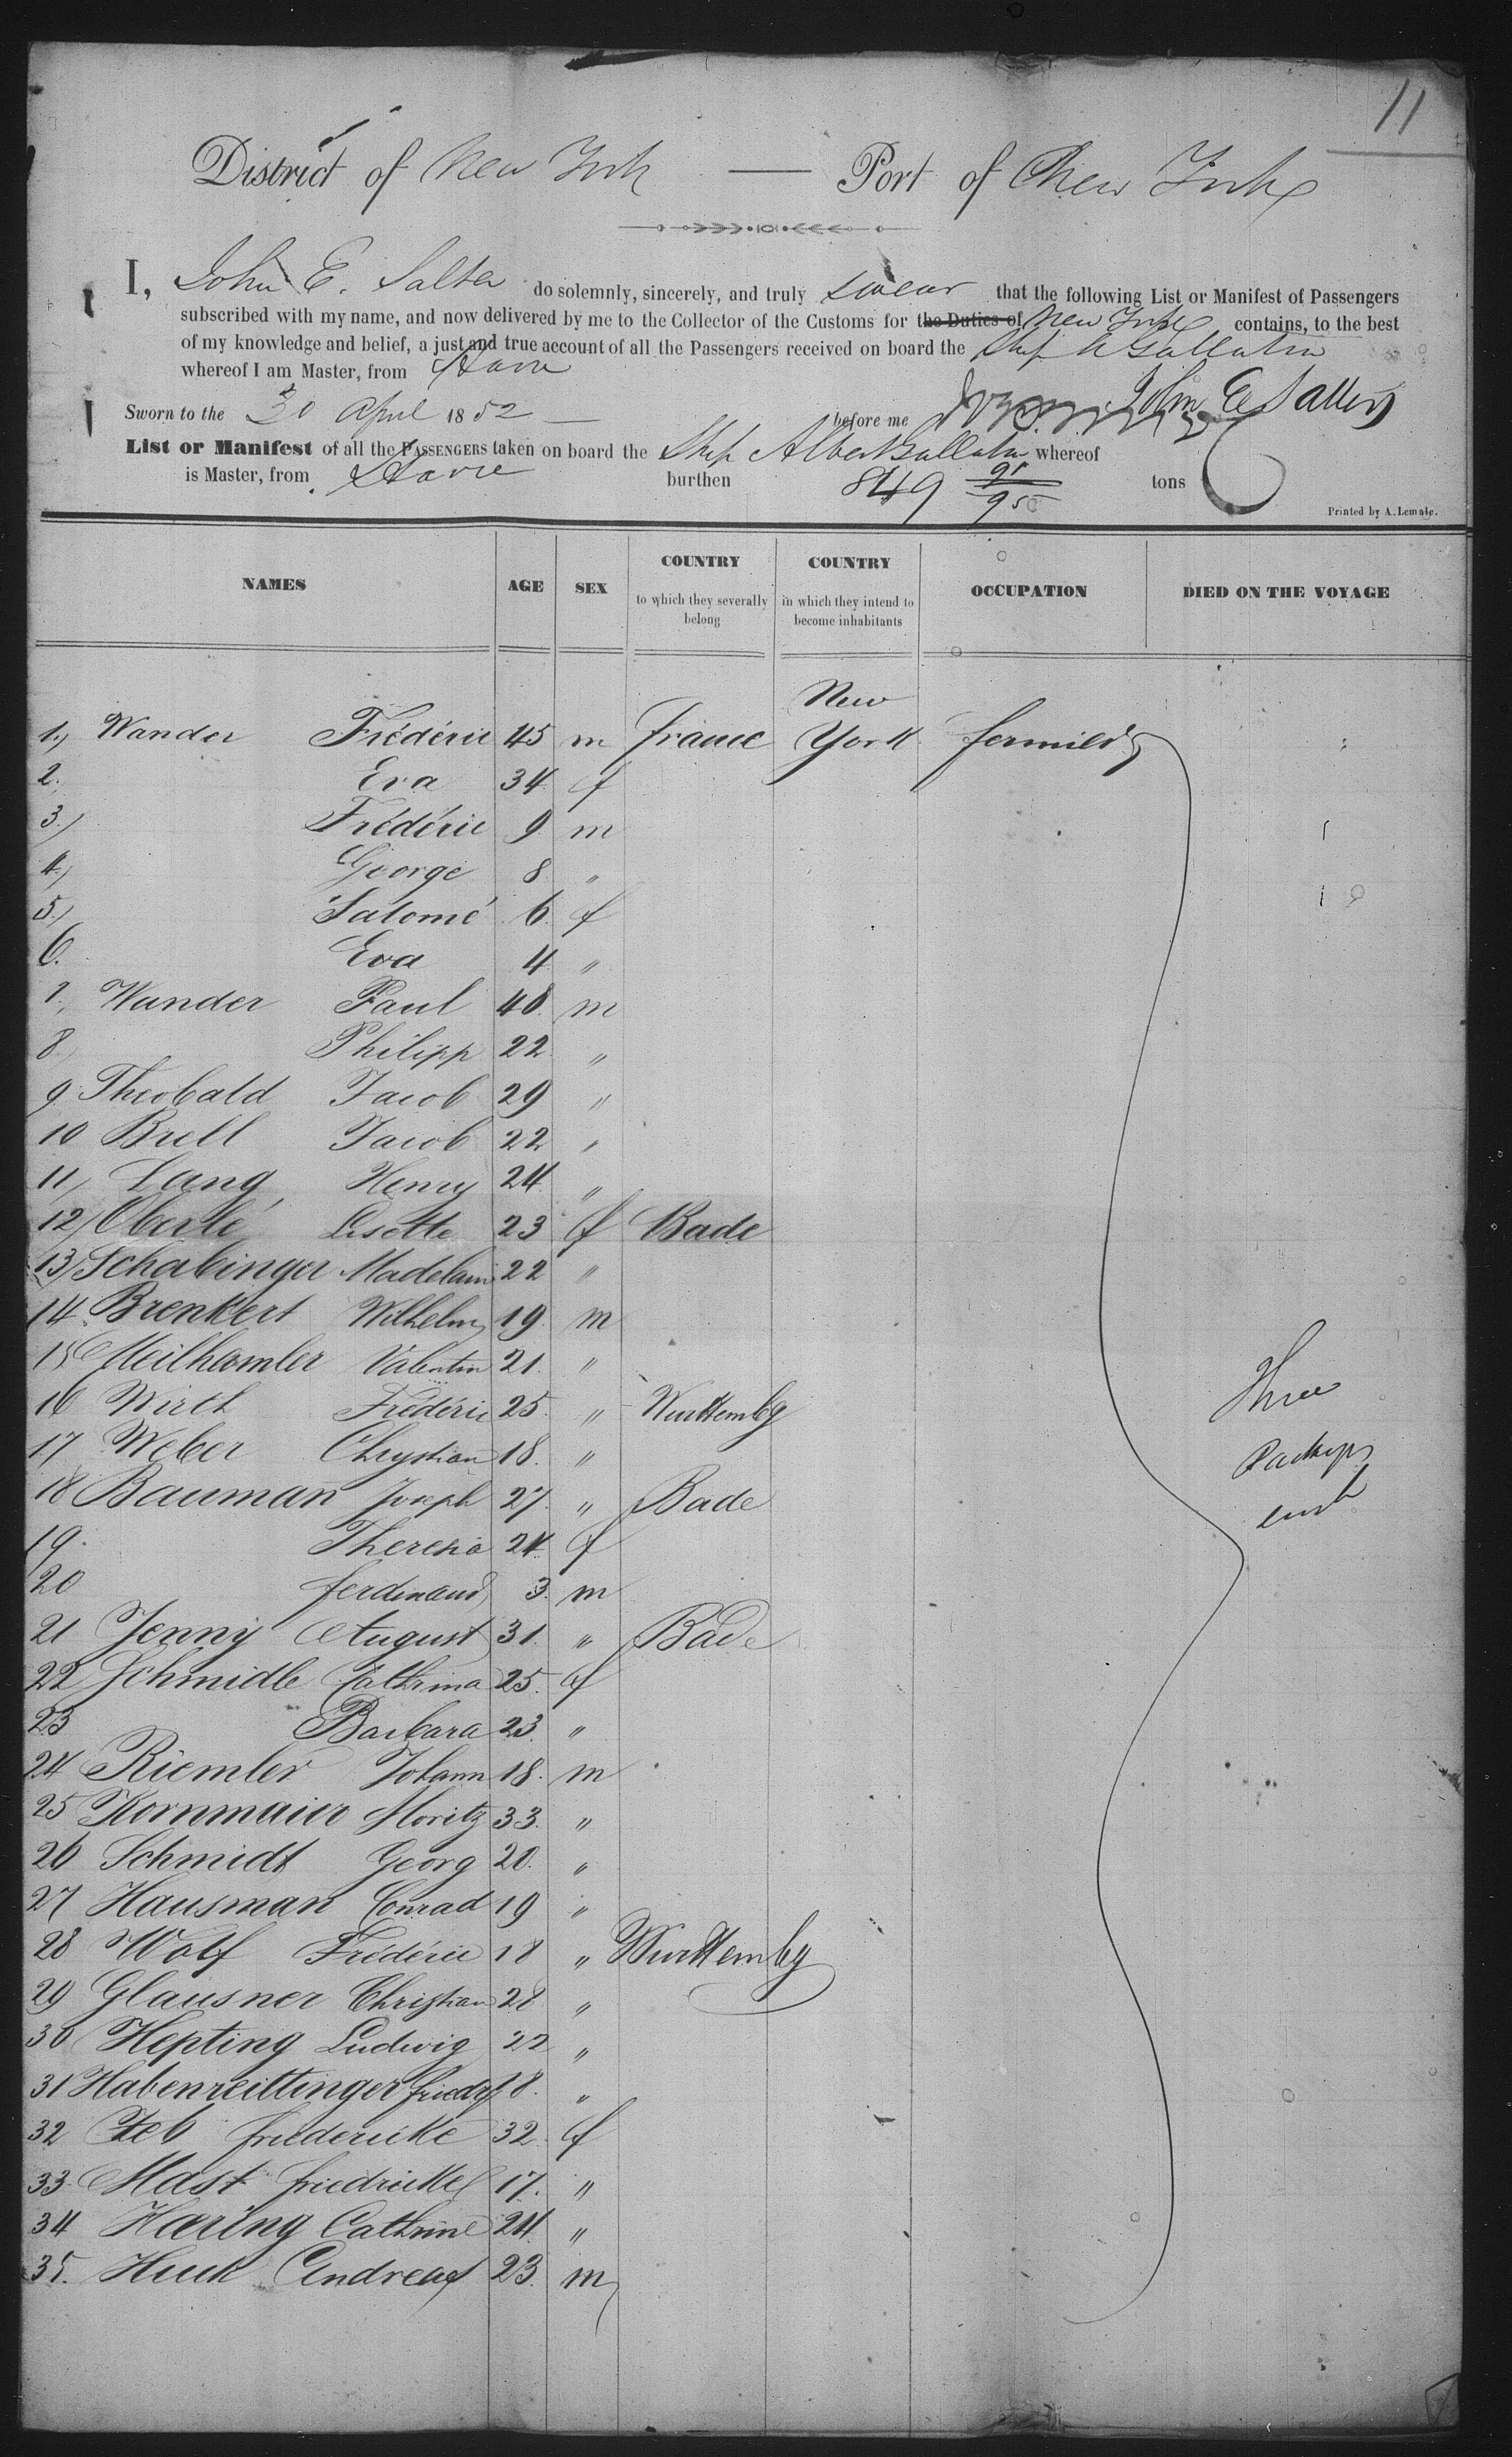 11
District of New York — Port of New York
I, John E. Salter do solemnly, sincerely, and truly swear that the following List or Manifest of Passengers
subscribed with my name, and now delivered by me to the Collector of the Customs for the Duties of New York contains, to the best
of my knowledge and belief, a just and true account of all the Passengers received on board the Ship A Gallatin
whereof I am Master, from Havre
John E Salter
Sworn to the 30 April 1852 before me
List or Manifest of all the PASSENGERS taken on board the Ship Albert Gallatin whereof
is Master, from Havre burthen 849 91/95 tons
Printed by A. Lemale.
NAMES AGE SEX COUNTRY to which they severally belong COUNTRY in which they intend to become inhabitants OCCUPATION DIED ON THE VOYAGE
1. Wander Frédéric 45 m france New York
2. Eva 34 f
3. Frédéric 9 m
4. George 8 "
5. Salomé 6 f
6. Eva 4 "
7. Wander Paul 48 m
8. Philipp 22 "
9. Theobald Jacob 29 "
10 Brell Jacob 22 "
11 Lang Henry 24 "
12 Oberlé Lisette 23 f Bade
13 Schabinger Madelain 22 "
14 Brenkert Wilhelm 19 m
15 Meilhamler Valentin 21 "
16 Wirth Frédéric 25 " Wurttembg
17 Weber Chrystian 18 "
18 Bauman Joseph 27 " Bade
19 Theresia 24 f
20 ferdinand 3 m
21 Jenny August 31 " Bade
22 Schmidle Cathrina 25 f
23 Barbara 23 "
24 Riemler Johann 18 m
25 Kornmaier Moritz 33 "
26 Schmidt Georg 20 "
27 Hausman Conrad 19 "
28 Wolf Frédéric 18 " Wurttembg
29 Glausner Christian 28 "
30 Hepting Ludwig 22 "
31 Habenreittinger friedr 18 "
32 Zeb friedericke 32 f
33 Mast friedricke 17 "
34 Haring Cathrine 24 "
35. Huck Andreas 23 m
Three
Packages
each